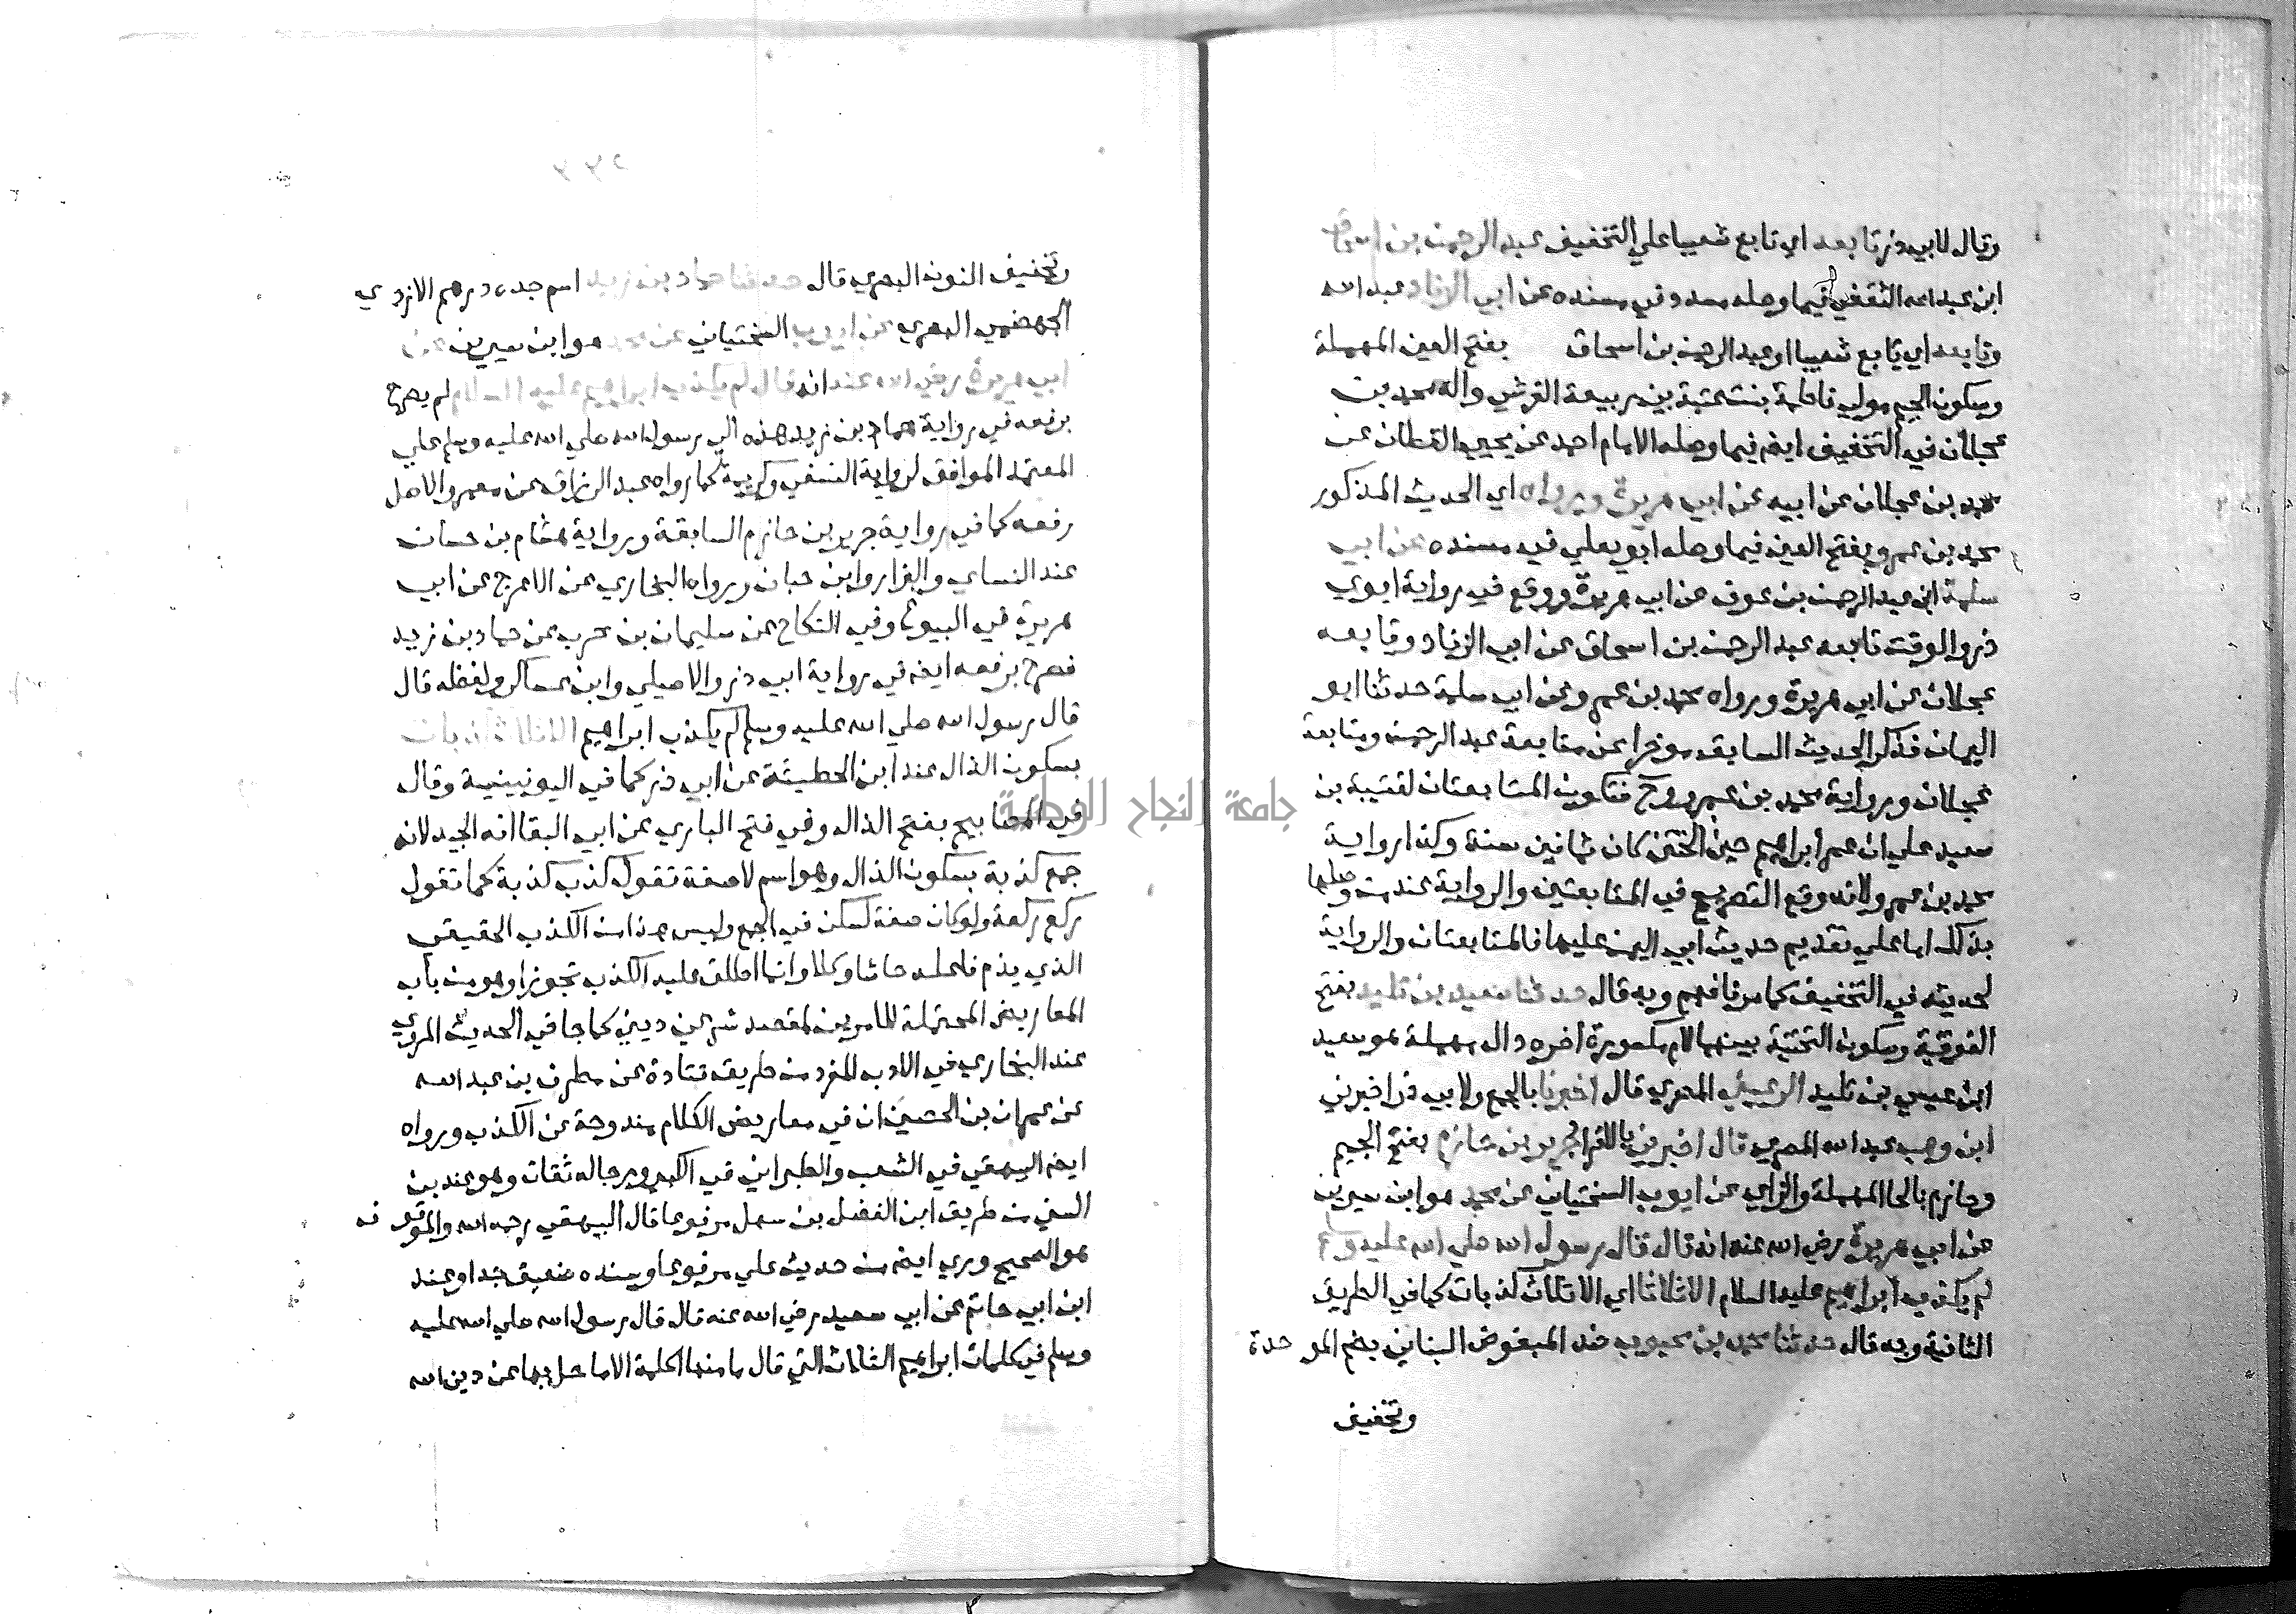 وقال لابي ذر تابعه اي تابع شعيبا علي التخفيف عبد الرحمن بن اسحاق
ابن عبد الله الثقفي فيما وصله مسدد في مسنده عن ابي الزناد عبد الله
وتابعه اي تابع شعيبا او عبد الرحمن بن اسحاق بفتح العين المهملة
وسكون الجيم مولي فاطمة بنت عتبة بن ربيعة القرشي والد محمد بن
عجلان في التخفيف ايضا فيما وصله الامام احمد عن يحيي القطان عن
محمد بن عجلان عن ابيه عن ابي هريرة ورواه اي الحديث المذكور
محمد بن عمرو بفتح العين فيما وصله ابو يعلي في مسنده عن ابي
سلمة ابن عبد الرحمن بن عوف عن ابي هريرة ووقع في رواية ابوي
ذر والوقت تابعه عبد الرحمن بن اسحاق عن ابي الزناد وتابعه
عجلان عن ابي هريرة ورواه محمد بن عمرو عن ابي سلمة حدثنا ابو
اليمان فذكر الحديث السابق موخرا عن متابعة عبد الرحمن ومتابعة
عجلان ورواية محمد بن عمرو فتكون المتابعتان لقتيبة بن
سعيد علي ان عمر ابراهيم حين اختتن كان ثمانين سنة وكذا رواية
محمد بن عمرو ولانه وقع التصريح في المتابعتين والرواية عند من وصلها
بذلك اما علي تقديم حديث ابي اليمن عليها فالمتابعتان والرواية
لحديثه في التخفيف كما مر فافهم وبه قال حدثنا سعيد بن تليد بفتح
الفوقية وسكون التحتية بينهما لام مكسورة اخره دال مهملة هو سعيد
ابن عيسي بن تليد الرعيني المصري قال اخبرنا بالجمع ولابي ذر اخبرني
ابن وهب عبد الله المصري قال اخبرني بالافراد جرير بن حازم بفتح الجيم
وحازم بالحا المهملة والزاي عن ايوب السختياني عن محمد هو ابن سيرين
عن ابي هريرة رضي الله عنه انه قال قال رسول الله صلي الله عليه وسلم
لم يكذب ابراهيم عليه السلام الا ثلاثا اي الا ثلاث كذبات كما في الطريق
الثانية وبه قال حدثنا محمد بن محبوب ضد المبغوض البناني بضم الموحدة
وتخفيف
وتخفيف النون البصري قال حدثنا حماد بن زيد اسم جده درهم الازدي
الجهضمي البصري عن ايوب السختياني عن محمد هو ابن سيرين عن
ابي هريرة رضي الله عنه انه قال لم يكذب ابراهيم عليه السلام لم يصرح
برفعه في رواية حماد بن زيد هذه الي رسول الله صلي الله عليه وسلم علي
المعتمد الموافق لرواية النسفي وكريمة كما رواه عبد الرزاق عن معمر والاصل
رفعه كما في رواية جرير بن حازم السابقة ورواية هشام بن حسان
عند النساي والبزار وابن حبان ورواه البخاري عن الاعرج عن ابي
هريرة في البيوع وفي النكاح عن سليمان بن حرب عن حماد بن زيد
فصرح برفعه ايضا في رواية ابي ذر والاصيلي وابن عساكر ولفظه قال
قال رسول الله صلي الله عليه وسلم لم يكذب ابراهيم الا ثلاث كذبات
بسكون الذال عند ابن الحطيئة عن ابي ذر كما في اليونينية وقال
في المصابيح بفتح الذال وفي فتح الباري عن ابي البقا انه الجيد لانه
جمع كذبة بسكون الذال وهو اسم لا صفة تقول كذب كذبة كما تقول
ركع ركعة ولو كان صفة لسكن في الجمع وليس هذا من الكذب الحقيقي
الذي يذم فاعله حاشا وكلا وانما اطلق عليه الكذب تجوزا وهو من باب
المعاريض المحتملة للامرين لمقصد شرعي ديني كما جا في الحديث المروي
عند البخاري في الادب المفرد من طريق قتادة عن مطرف بن عبد الله
عن عمران بن الحصين ان في معاريض الكلام مندوحة عن الكذب ورواه
ايضا البيهقي في الشعب والطبراني في الكبير ورجاله ثقات وهو عند بن
السني من طريق ابن الفضل بن سهل مرفوعا قال البيهقي رحمه الله والموقوف
هو الصحيح وروي ايضا من حديث علي مرفوعا وسنده ضعيف جدا وعند
ابن ابي حاتم عن ابي سعيد رضي الله عنه قال قال رسول الله صلي الله عليه
وسلم في كلمات ابراهيم الثلاث التي قال ما منها كلمة الا ما حل بها عن دين الله
جامعة النجاح الوطنية